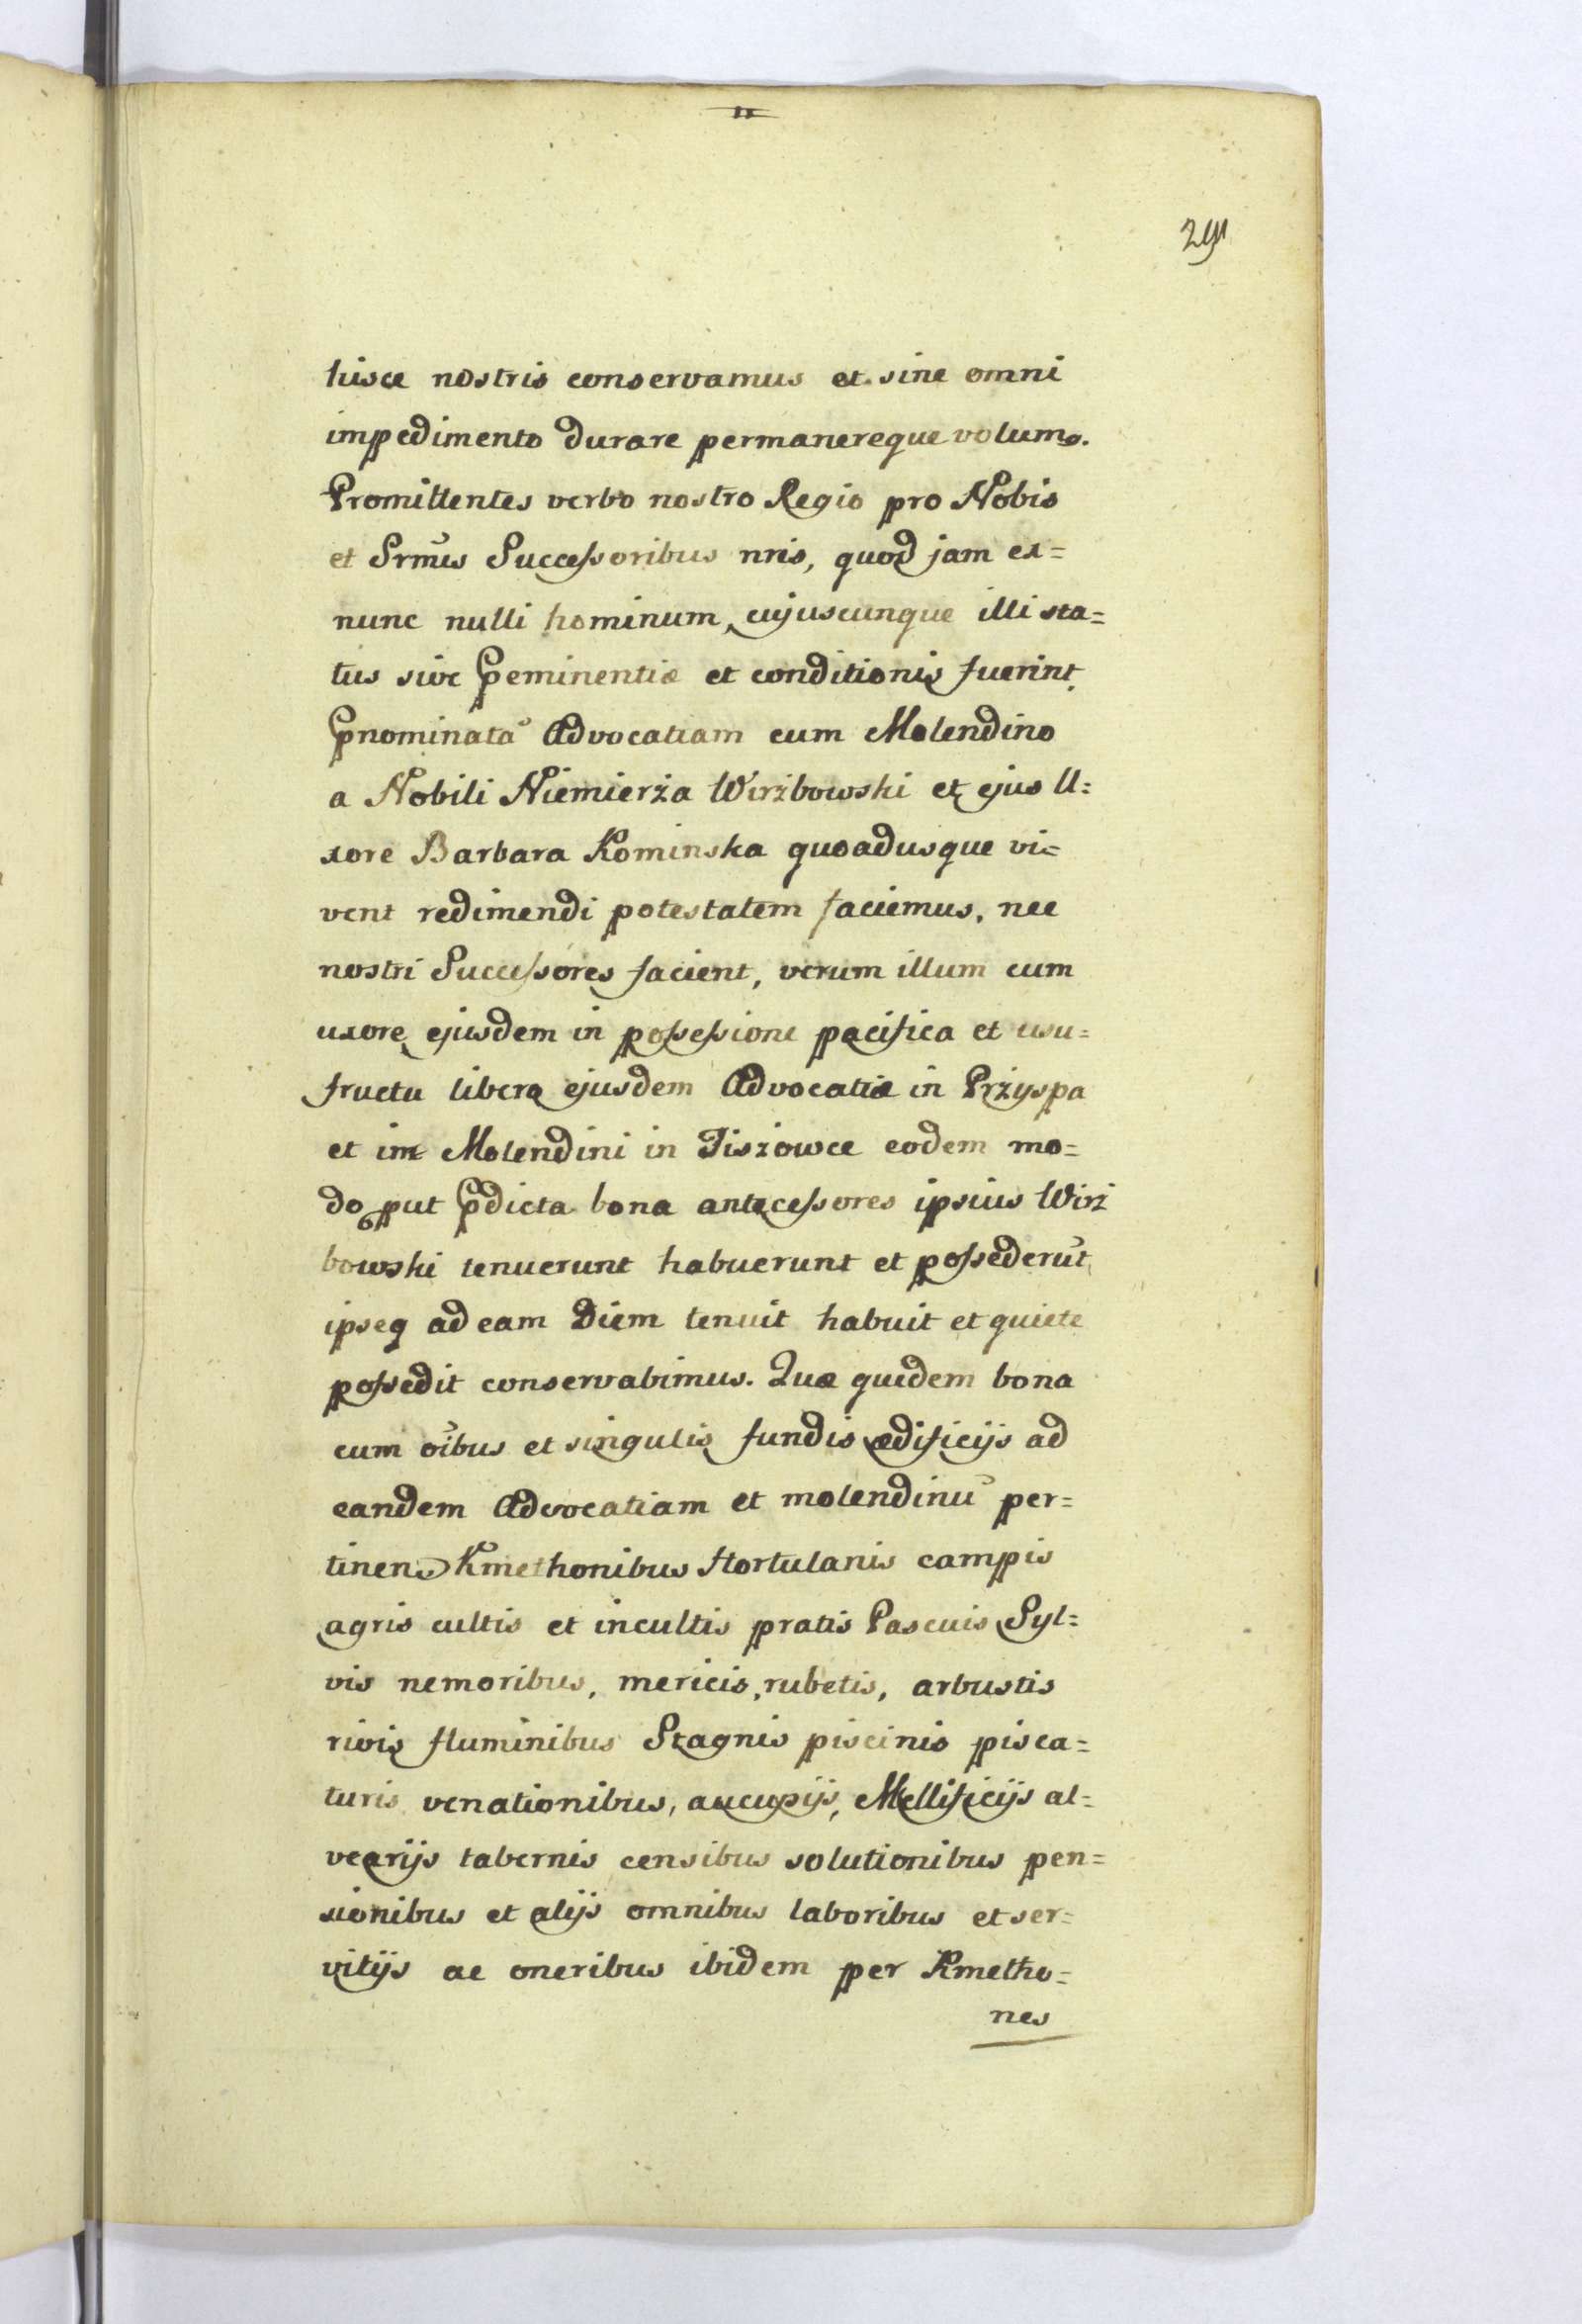 11
hisce nostris conservamus et sine omni
impedimento durare permanereque volum9.
Promittentes verbo nostro Regio pro Nobis
et Srm̃is Succeſsoribus nris, quod jam ex=
nunc nulli hominum, cujuscunque illi sta=
tus sive Peminentiæ et conditionis fuerint,
Pnominatã Advocatiam cum Molendino
a Nobili Niemierża Wirżbowski et ejus U=
xore Barbara Kominska quoadusque vi=
vent redimendi potestatem faciemus, nec
nostri Succeſsores facient, verum illum cum
uxore ejusdem in poſseſsione pacifica et usu=
fructu libero ejusdem Advocatiæ in Prżyspa
et Molendini in Tiszowce eodem mo=
do put Pdicta bona anteceſsores ipsius Wirż
bowski tenuerunt habuerunt et poſsederũt,
ipseq ad eam Diem tenuit habuit et quiete
poſsedit conservabimus. Quæ quidem bona
cum oĩbus et singulis fundis ædificijs ad
eandem Advocatiam et molendinũ per=
tinen Kmethonibus Hortulanis campis
agris cultis et incultis pratis Pascuis Syl=
vis nemoribus, mericis, rubetis, arbustis
rivis fluminibus Stagnis piscinis pisca=
turis venationibus, aucupijs, Mellificijs al=
vearijs tabernis censibus solutionibus pen=
sionibus et alijs omnibus laboribus et ser=
vitijs ac oneribus ibidem per Kmetho=
nes